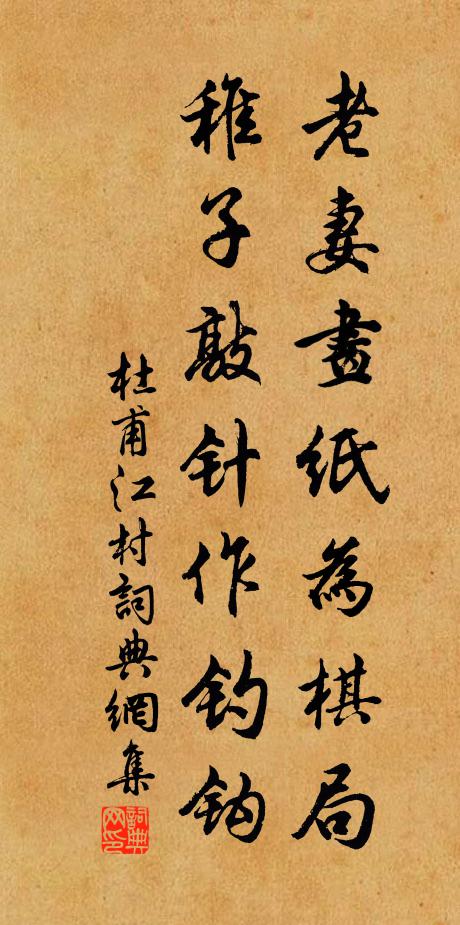 老妻畫紙為棋局
稚子敲针作钓钩
杜甫江村詞典網集
詞典
网印